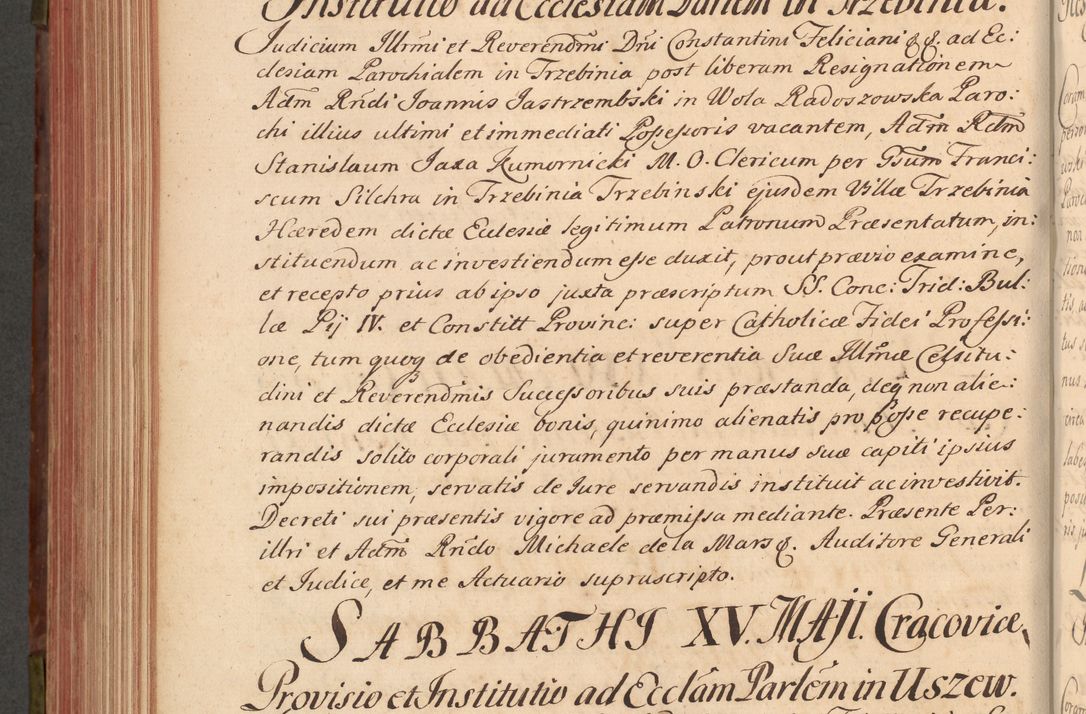 Institutio ad Ecclesiam Parlem in Trzebinia.
Judicium Illrmi et Reverendmi Dni Constantini Feliciani &. &. ad Ec:
clesiam Parochialem in Trzebinia post liberam Resignationem
Adm Rndi Joannis Jastrzembski in Wola Radoszowska Paro:
chi illius ultimi et immediati Possessoris vacantem, Adm Rdm
Stanislaum Jaxa Kumornicki M. O. Clericum per Gsum Franci:
scum Silchra in Trzebinia Trzebinski ejusdem Villæ Trzebinia
Hæredem dictæ Ecclesiæ legitimum Patronum Præsentatum, in:
stituendum ac investiendum esse duxit, prout prævio examine,
et recepto prius ab ipso juxta præscriptum SS. Conc: Trid: Bul:
læ Pij IV. et Constitt Provinc: super Catholicæ Fidei Professi:
one, tum quoq de obedientia et reverentia Suæ Illmæ Celsitu:
dini et Reverendmis Successoribus suis præstanda, deq non alie:
nandis dictæ Ecclesiæ bonis, quinimo alienatis pro posse recupe:
randis solito corporali juramento per manus suæ capiti ipsius
impositionem, servatis de Jure servandis instituit ac investivit.
Decreti sui præsentis vigore ad præmissa mediante. Præsente Per:
illri et Adm Rndo Michaele de la Mars &. Auditore Generali
et Judice, et me Actuario suprascripto.
SABBATHI XV. MAJI. Cracoviæ
Provisio et Institutio ad Ecclam Parlem in Uszew.